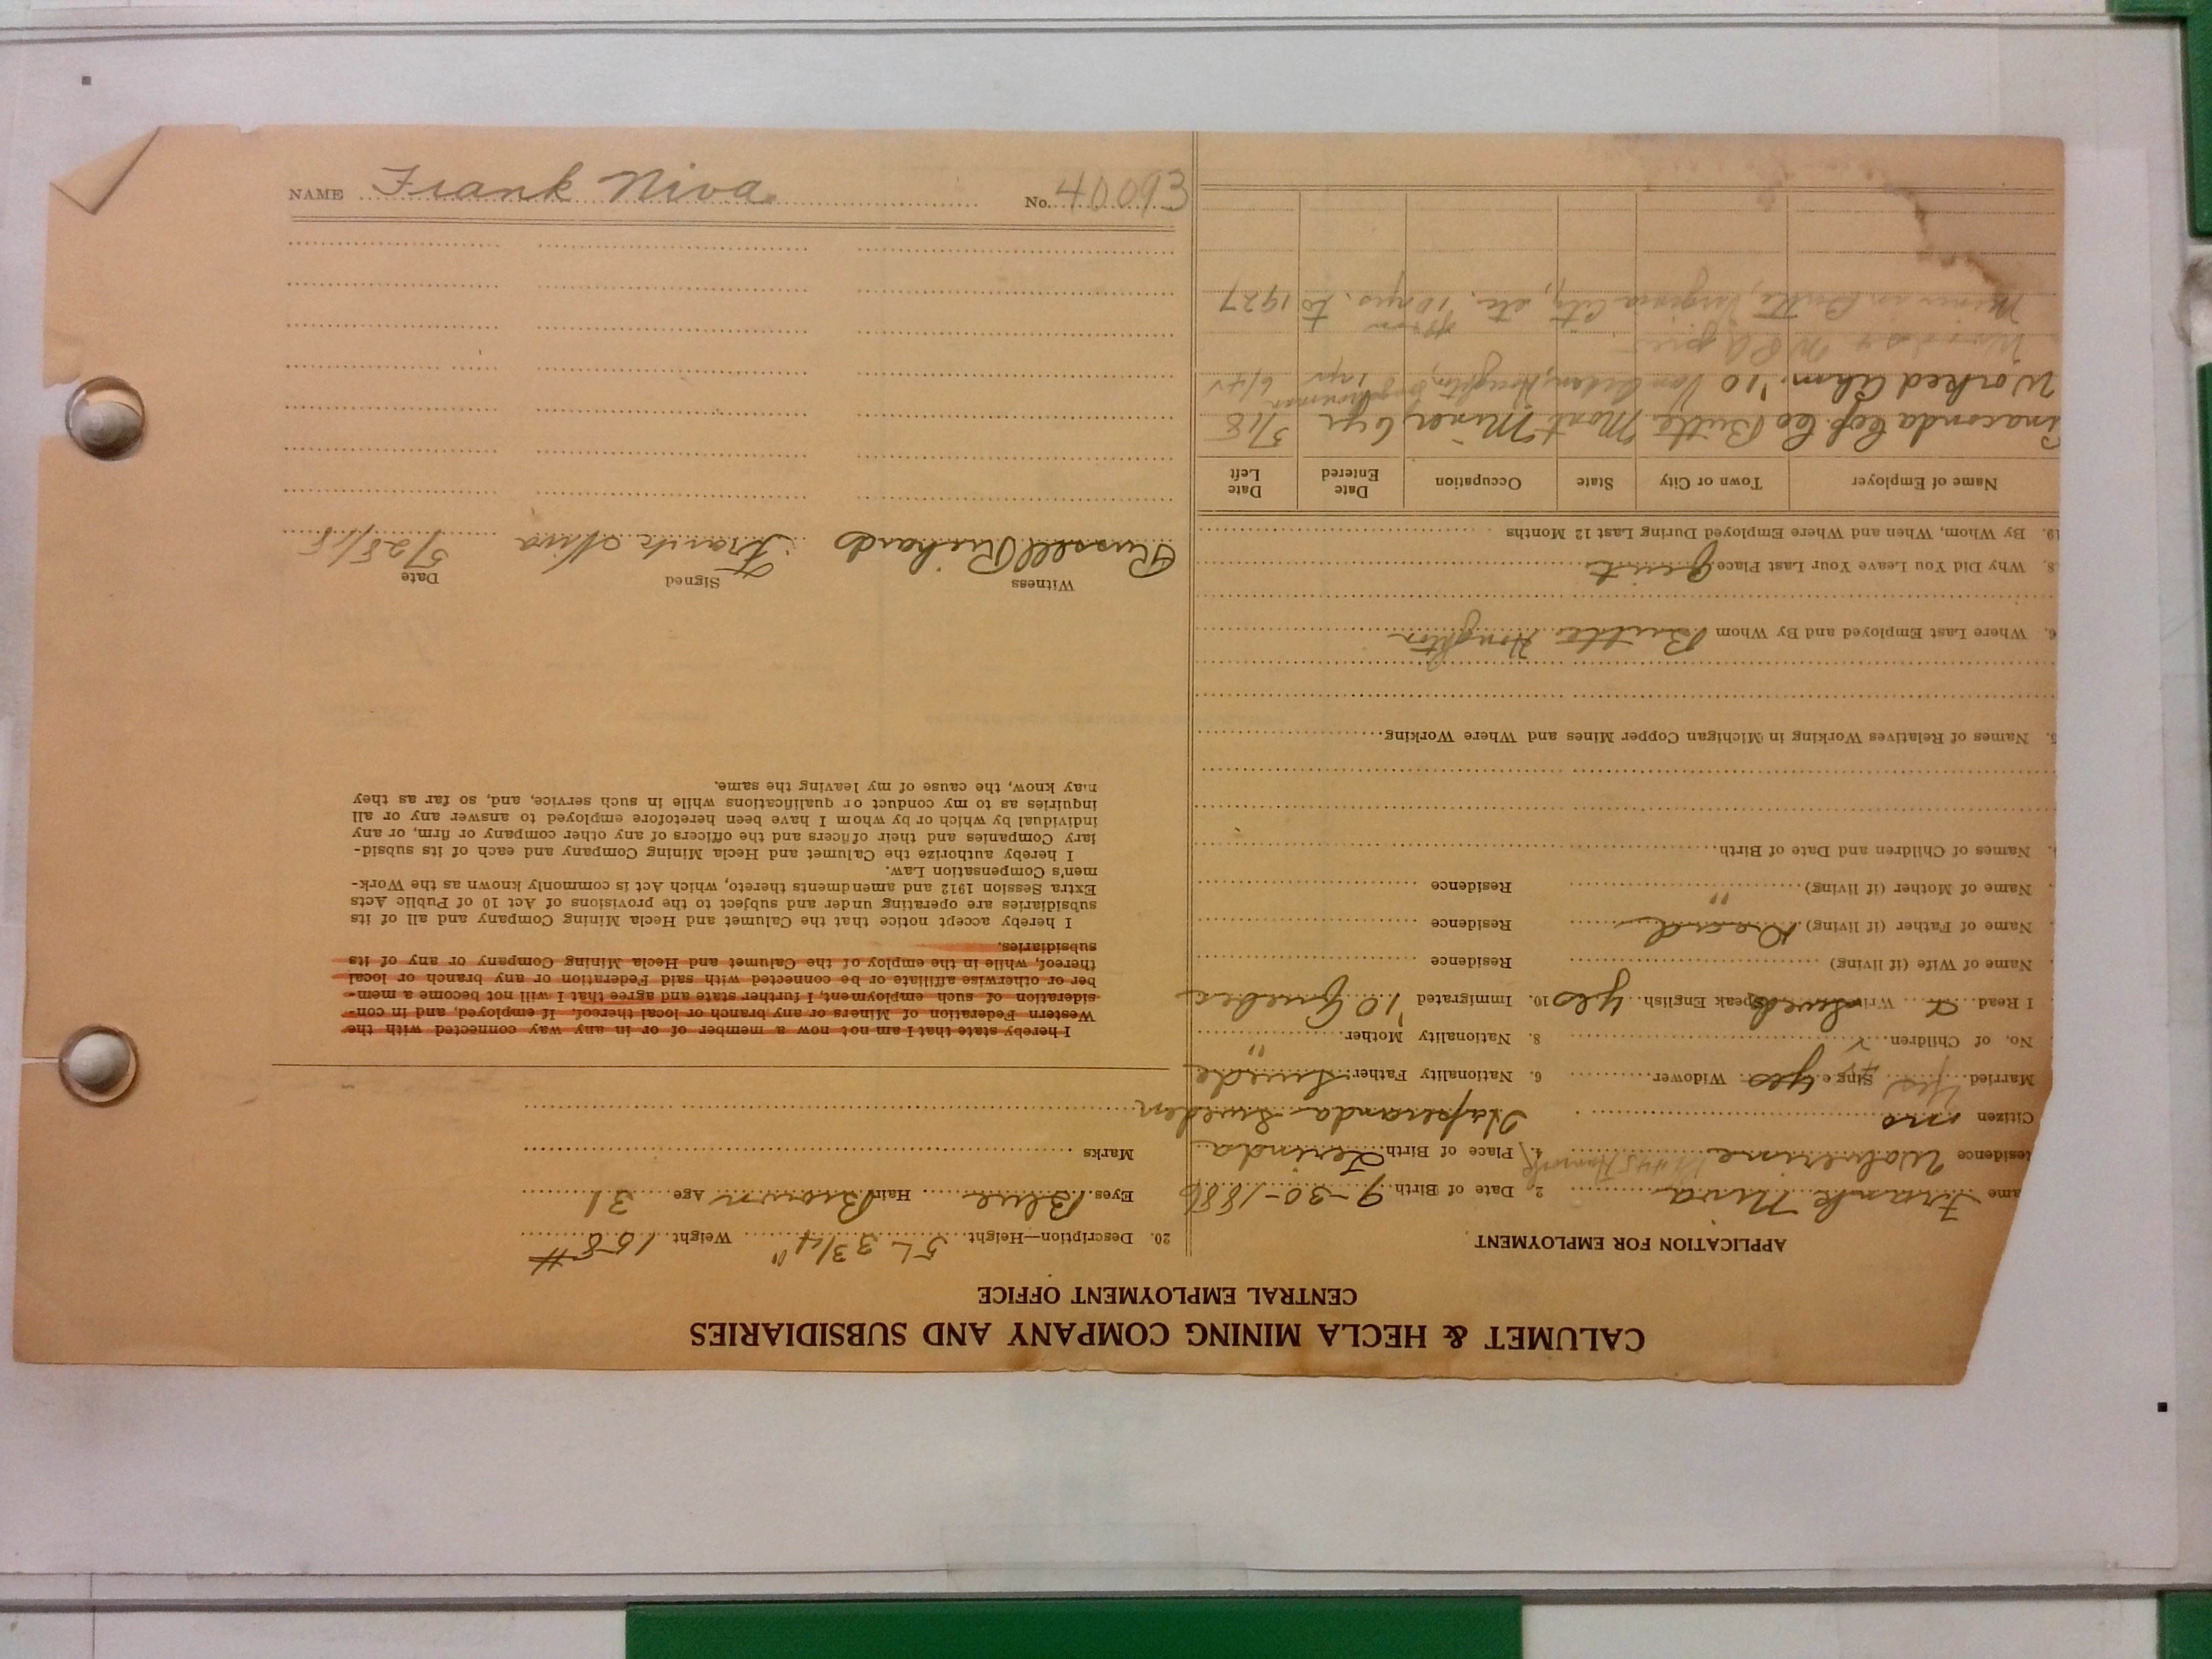 CALUMET & HECLA MINING COMPANY AND SUBSIDIARIES
CENTRAL EMPLOYMENT OFFICE
APPLICATION FOR EMPLOYMENT
ame Frank Niva 2. Date of Birth 9-30-1886
esidence Wolverine 4. Place of Birth
Citizen no Haparanda Sweden
Married Yes Single Yes Widower 6. Nationality Father Swede
No. of Children 8. Nationality Mother "
I Read Write Swede Speak English yes 10. Immigrated '10 Quebec
Name of Wife (if living) Residence
Name of Father (if living) Dead Residence
Name of Mother (if living) " Residence
Names of Children and Date of Birth
5. Names of Relatives Working in Michigan Copper Mines and Where Working
6. Where Last Employed and By Whom Butte Houghton
8. Why Did You Leave Your Last Place Quit
19. By Whom, When and Where Employed During Last 12 Months
Name of Employer Town or City State Occupation Date Entered Date Left
Anaconda Cop. Co Butte Mont Miner 6 yr 5/18
Worked Ahm. '10 Houghton, 1 yr
Miner in Butte, Virginia City, etc. 10 yrs. to 1927
20. Description—Height 5L 3 3/4" Weight 158 #
Eyes Blue Hair Brown Age 31
Marks
I hereby state that I am not now a member of or in any way connected with the
Western Federation of Miners or any branch or local thereof. If employed, and in con-
sideration of such employment, I further state and agree that I will not become a mem-
ber or otherwise affiliate or be connected with said Federation or any branch or local
thereof, while in the employ of the Calumet and Hecla Mining Company or any of its
subsidiaries.
I hereby accept notice that the Calumet and Hecla Mining Company and all of its
subsidiaries are operating under and subject to the provisions of Act 10 of Public Acts
Extra Session 1912 and amendments thereto, which Act is commonly known as the Work-
men's Compensation Law.
I hereby authorize the Calumet and Hecla Mining Company and each of its subsid-
iary Companies and their officers and the officers of any other company or firm, or any
individual by which or by whom I have been heretofore employed to answer any or all
inquiries as to my conduct or qualifications while in such service, and, so far as they
may know, the cause of my leaving the same.
Witness Signed Date
Russell Richards Frank Niva 5/28/18
NAME Frank Niva No. 40093